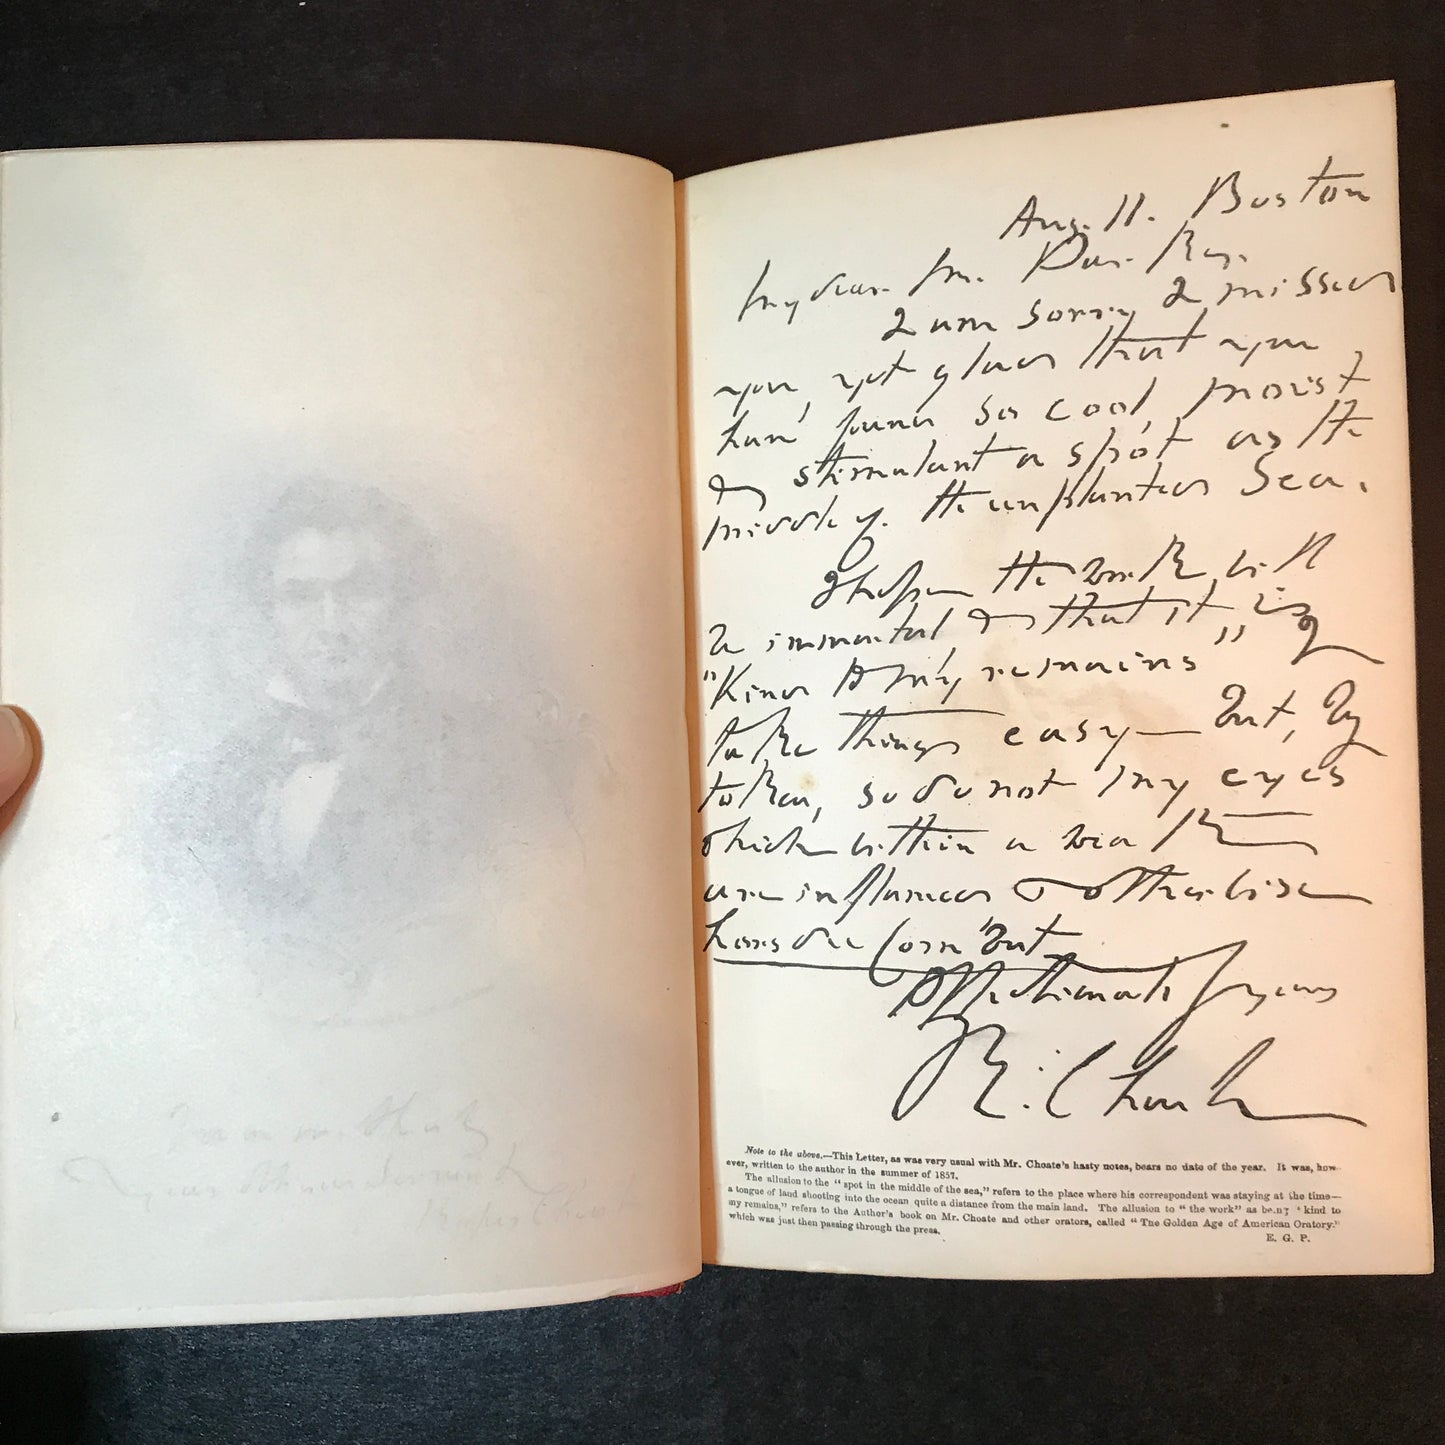 Aug. 11. Boston
My dear Mr. Par. Ker.
I am sorry I missed
you, yet glad that you
have found so cool, moist
& stimulant a spot as the
middle of the unplanted Sea.
I hope the work will
be immortal, & that it is
"Kind to my remains". I
take things easy — but, by
token, so do not my eyes
which within a week
are inflamed & otherwise
hors de combat
Affectionately yours
R. Choate
Note to the above.—This Letter, as was very usual with Mr. Choate's hasty notes, bears no date of the year. It was, how-
ever, written to the author in the summer of 1857.
The allusion to the "spot in the middle of the sea," refers to the place where his correspondent was staying at the time—
a tongue of land shooting into the ocean quite a distance from the main land. The allusion to "the work" as being 'kind to
my remains," refers to the Author's book on Mr. Choate and other orators, called "The Golden Age of American Oratory."
which was just then passing through the press.
E. G. P.
Rufus Choate